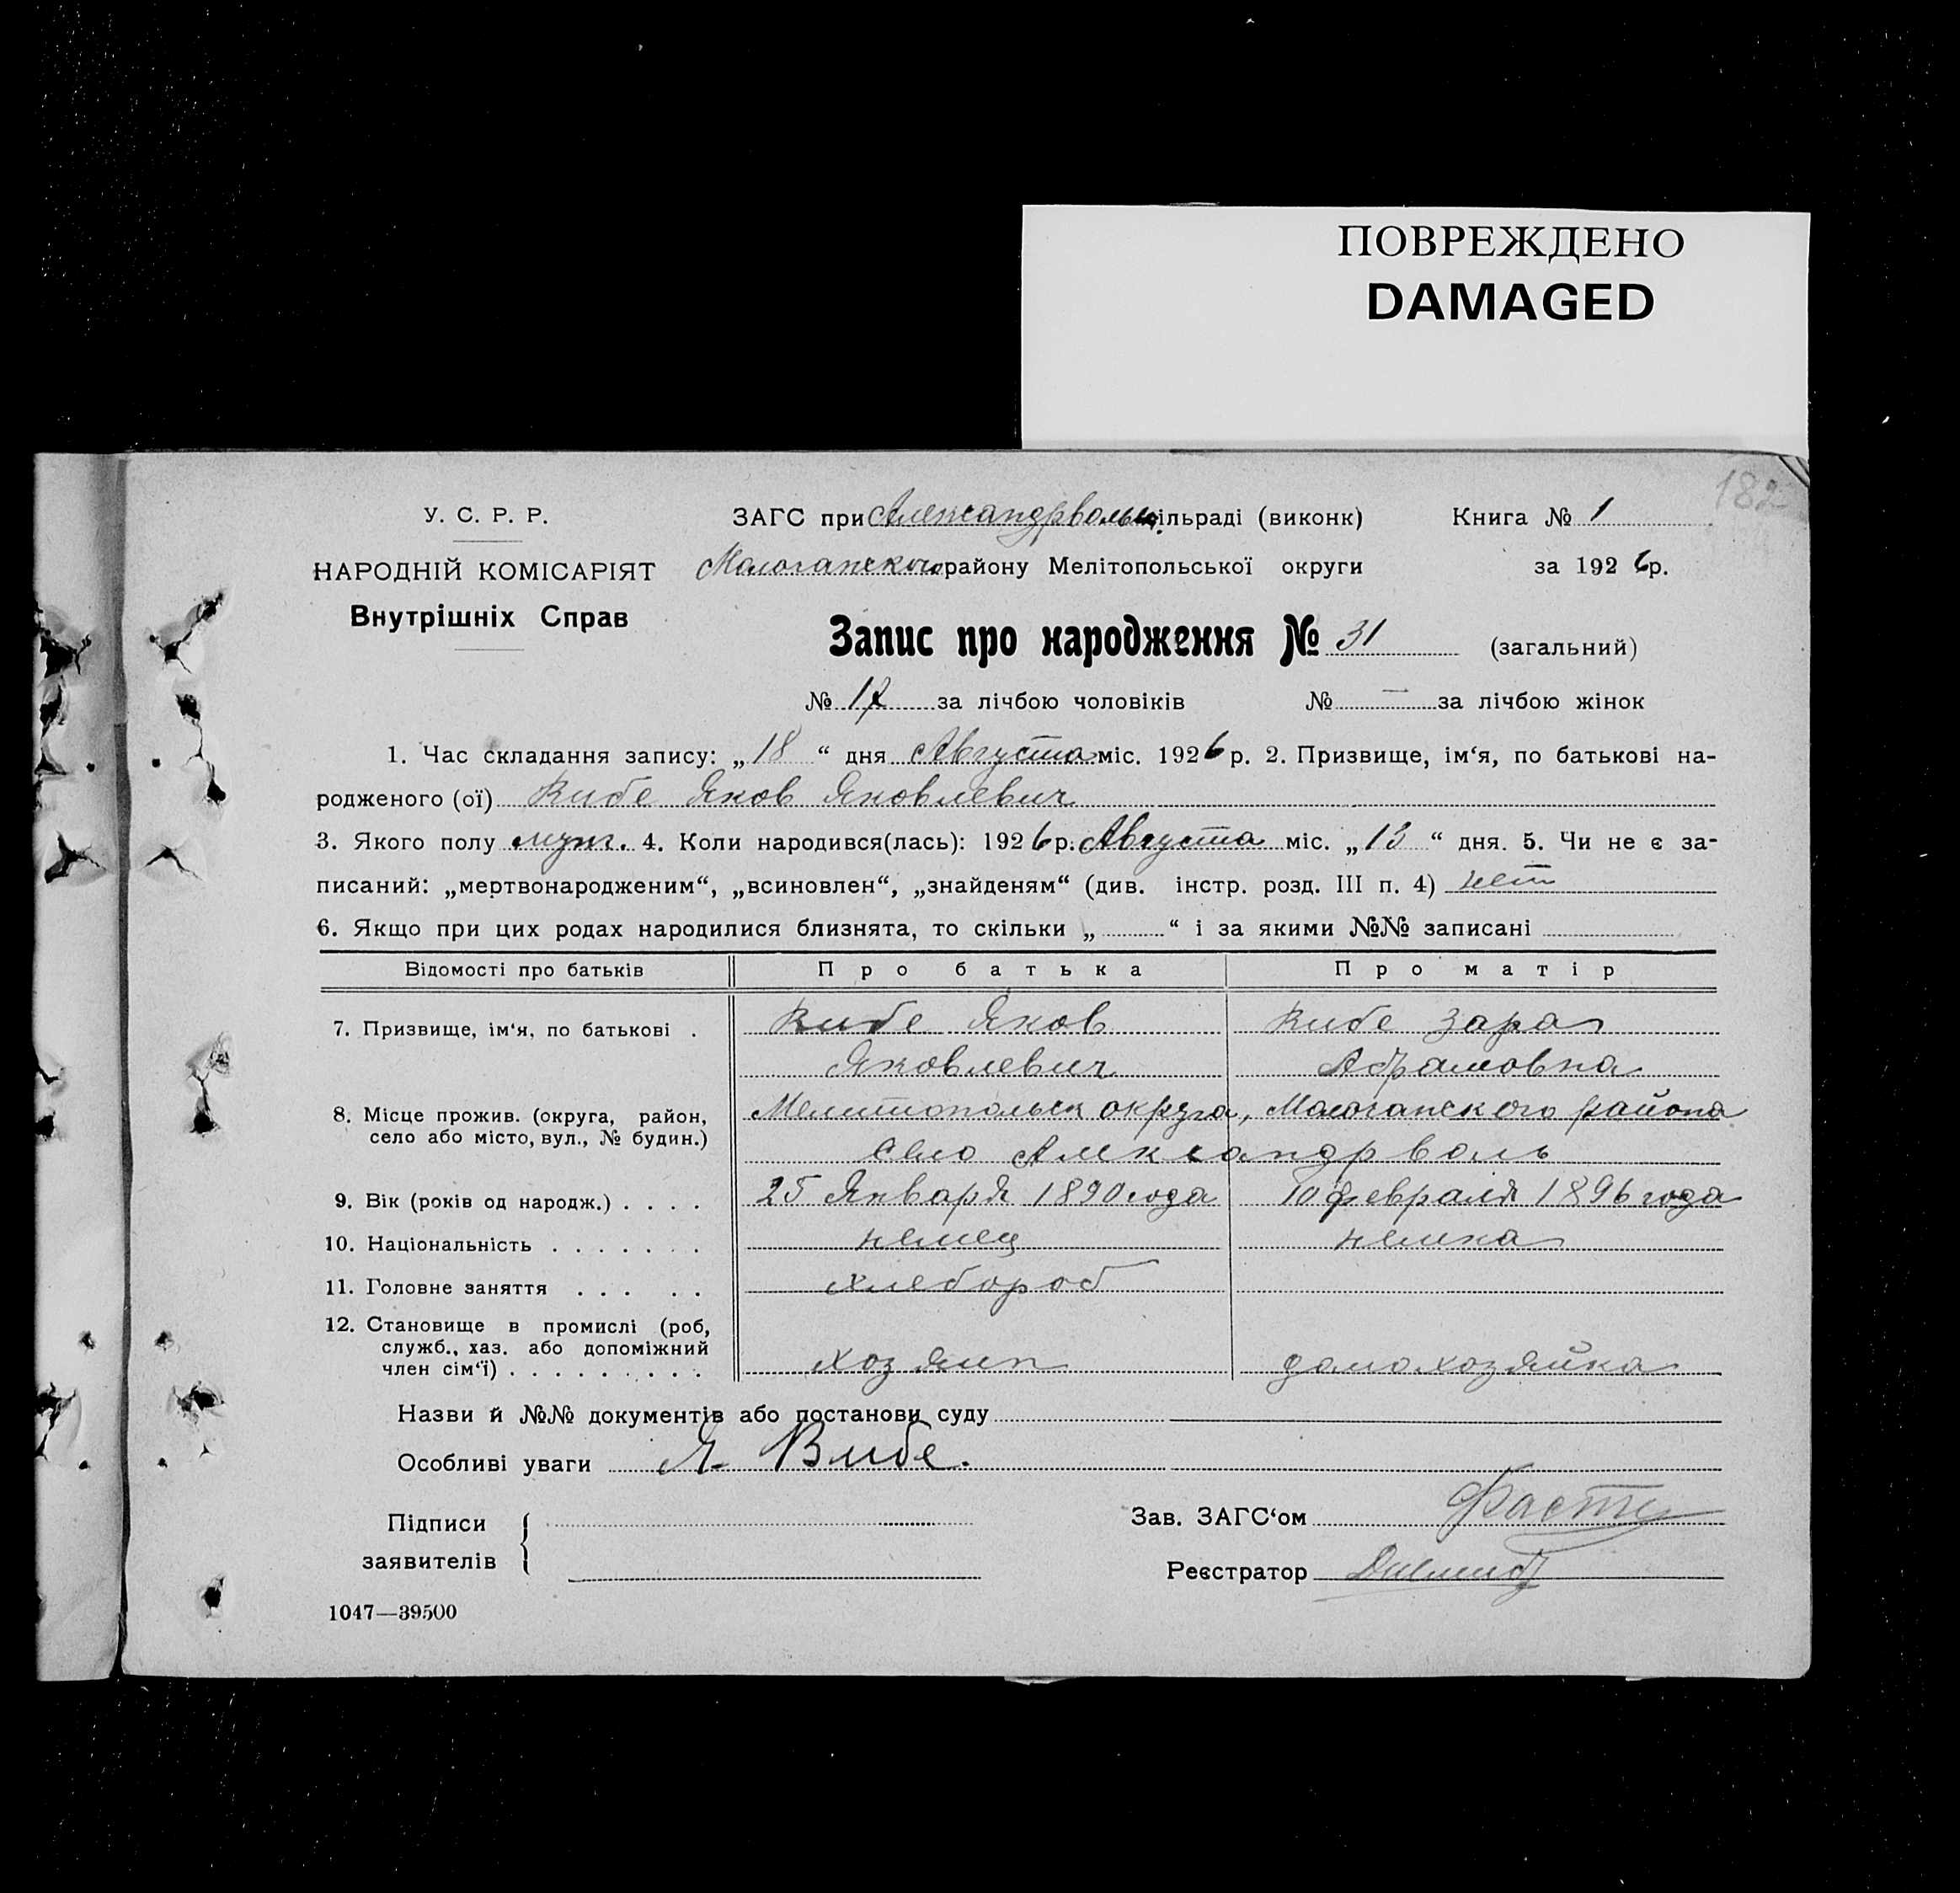 ПОВРЕЖДЕНО
DAMAGED
182
У. С. Р. Р.
НАРОДНІЙ КОМІСАРІЯТ
Внутрішніх Справ
ЗАГС при Александрвольск. сільраді (виконк)
Молочанского району Мелітопольської округи
Книга № 1
за 1926 р.
Запис про народження № 31 (загальний)
№ 17 за лічбою чоловіків № — за лічбою жінок
1. Час складання запису: „18“ дня Августа міс. 1926 р. 2. Призвище, ім‘я, по батькові на-
родженого (ої) Вибе Яков Яковлевич
3. Якого полу муж. 4. Коли народився(лась): 1926 р. Августа міс. „13“ дня. 5. Чи не є за-
писаний: „мертвонародженим“, „всиновлен“, „знайденям“ (див. інстр. розд. III п. 4) нет
6. Якщо при цих родах народилися близнята, то скільки „ “ і за якими №№ записані
Відомості про батьків Про батька Про матір
7. Призвище, ім‘я, по батькові . Вибе Яков Вибе Зара
Яковлевич Абрамовна
8. Місце прожив. (округа, район, село або місто, вул., № будин.) Мелитопольск округа, Молочанского района
село Александрволь
9. Вік (років од народж.) . . . . 25 Января 1890 года 10 февраля 1896 года
10. Національність . . . . . . . немец немка
11. Головне заняття . . . . . хлебороб
12. Становище в промислі (роб,
служб., хаз. або допоміжний
член сім‘ї) . . . . . . . . . хозяин домохозяйка
Назви й №№ документів або постанови суду
Особливі уваги Я. Вибе.
Підписи
заявителів
Зав. ЗАГС‘ом Фаст
Реєстратор
1047—39500